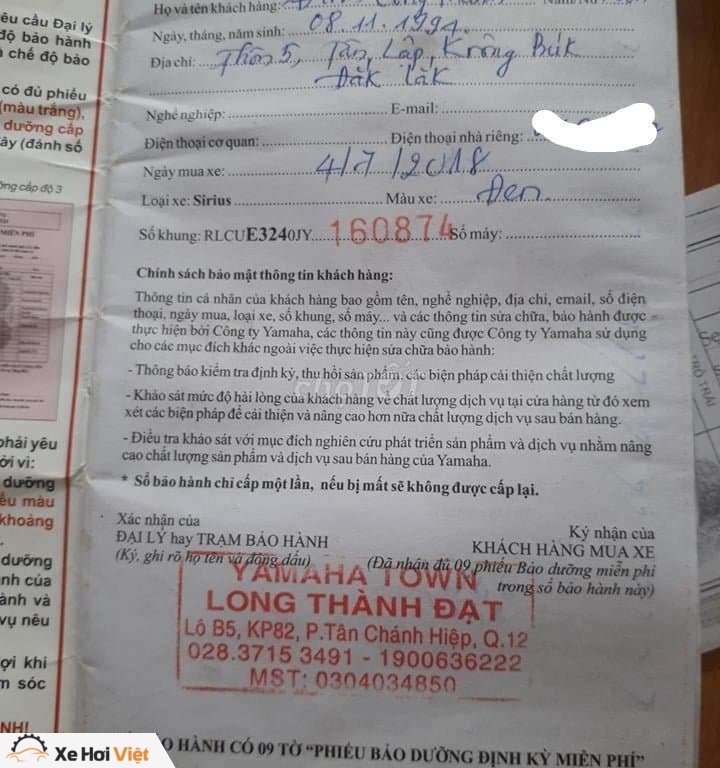 Họ và tên khách hàng:
Ngày, tháng, năm sinh: 08.11.1994
Địa chỉ: Thôn 5, Tân Lập, Krông Búk
Đăk Lăk
Nghề nghiệp: E-mail:
Điện thoại cơ quan: Điện thoại nhà riêng:
Ngày mua xe: 4/7/2018
Loại xe: Sirius Màu xe: Đen
Số khung: RLCUE3240JY 160874 Số máy:
Chính sách bảo mật thông tin khách hàng:
Thông tin cá nhân của khách hàng bao gồm tên, nghề nghiệp, địa chỉ, email, số điện
thoại, ngày mua, loại xe, số khung, số máy... và các thông tin sửa chữa, bảo hành được
thực hiện bởi Công ty Yamaha, các thông tin này cũng được Công ty Yamaha sử dụng
cho các mục đích khác ngoài việc thực hiện sửa chữa bảo hành:
- Thông báo kiểm tra định kỳ, thu hồi sản phẩm, các biện pháp cải thiện chất lượng
- Khảo sát mức độ hài lòng của khách hàng về chất lượng dịch vụ tại cửa hàng từ đó xem
xét các biện pháp để cải thiện và nâng cao hơn nữa chất lượng dịch vụ sau bán hàng.
- Điều tra khảo sát với mục đích nghiên cứu phát triển sản phẩm và dịch vụ nhằm nâng
cao chất lượng sản phẩm và dịch vụ sau bán hàng của Yamaha.
* Sổ bảo hành chỉ cấp một lần, nếu bị mất sẽ không được cấp lại.
Xác nhận của
ĐẠI LÝ hay TRẠM BẢO HÀNH
(Ký, ghi rõ họ tên và đóng dấu)
Ký nhận của
KHÁCH HÀNG MUA XE
(Đã nhận đủ 09 phiếu Bảo dưỡng miễn phí
trong sổ bảo hành này)
YAMAHA TOWN
LONG THÀNH ĐẠT
Lô B5, KP82, P.Tân Chánh Hiệp, Q.12
028.3715 3491 - 1900636222
MST: 0304034850
HÀNH CÓ 09 TỜ "PHIẾU BẢO DƯỠNG ĐỊNH KỲ MIỄN PHÍ"
êu cầu Đại lý
độ bảo hành
chế độ bảo
có đủ phiếu
(màu trắng),
dưỡng cấp
ây (đánh số
ng cấp độ 3
MIỄN PHÍ
phải yêu
ời vì:
dưỡng
ếu màu
khoảng
dưỡng
nh của
ành và
vụ nêu
ợi khi
m sóc
NH!
chợ TỐT
Xe Hơi Việt